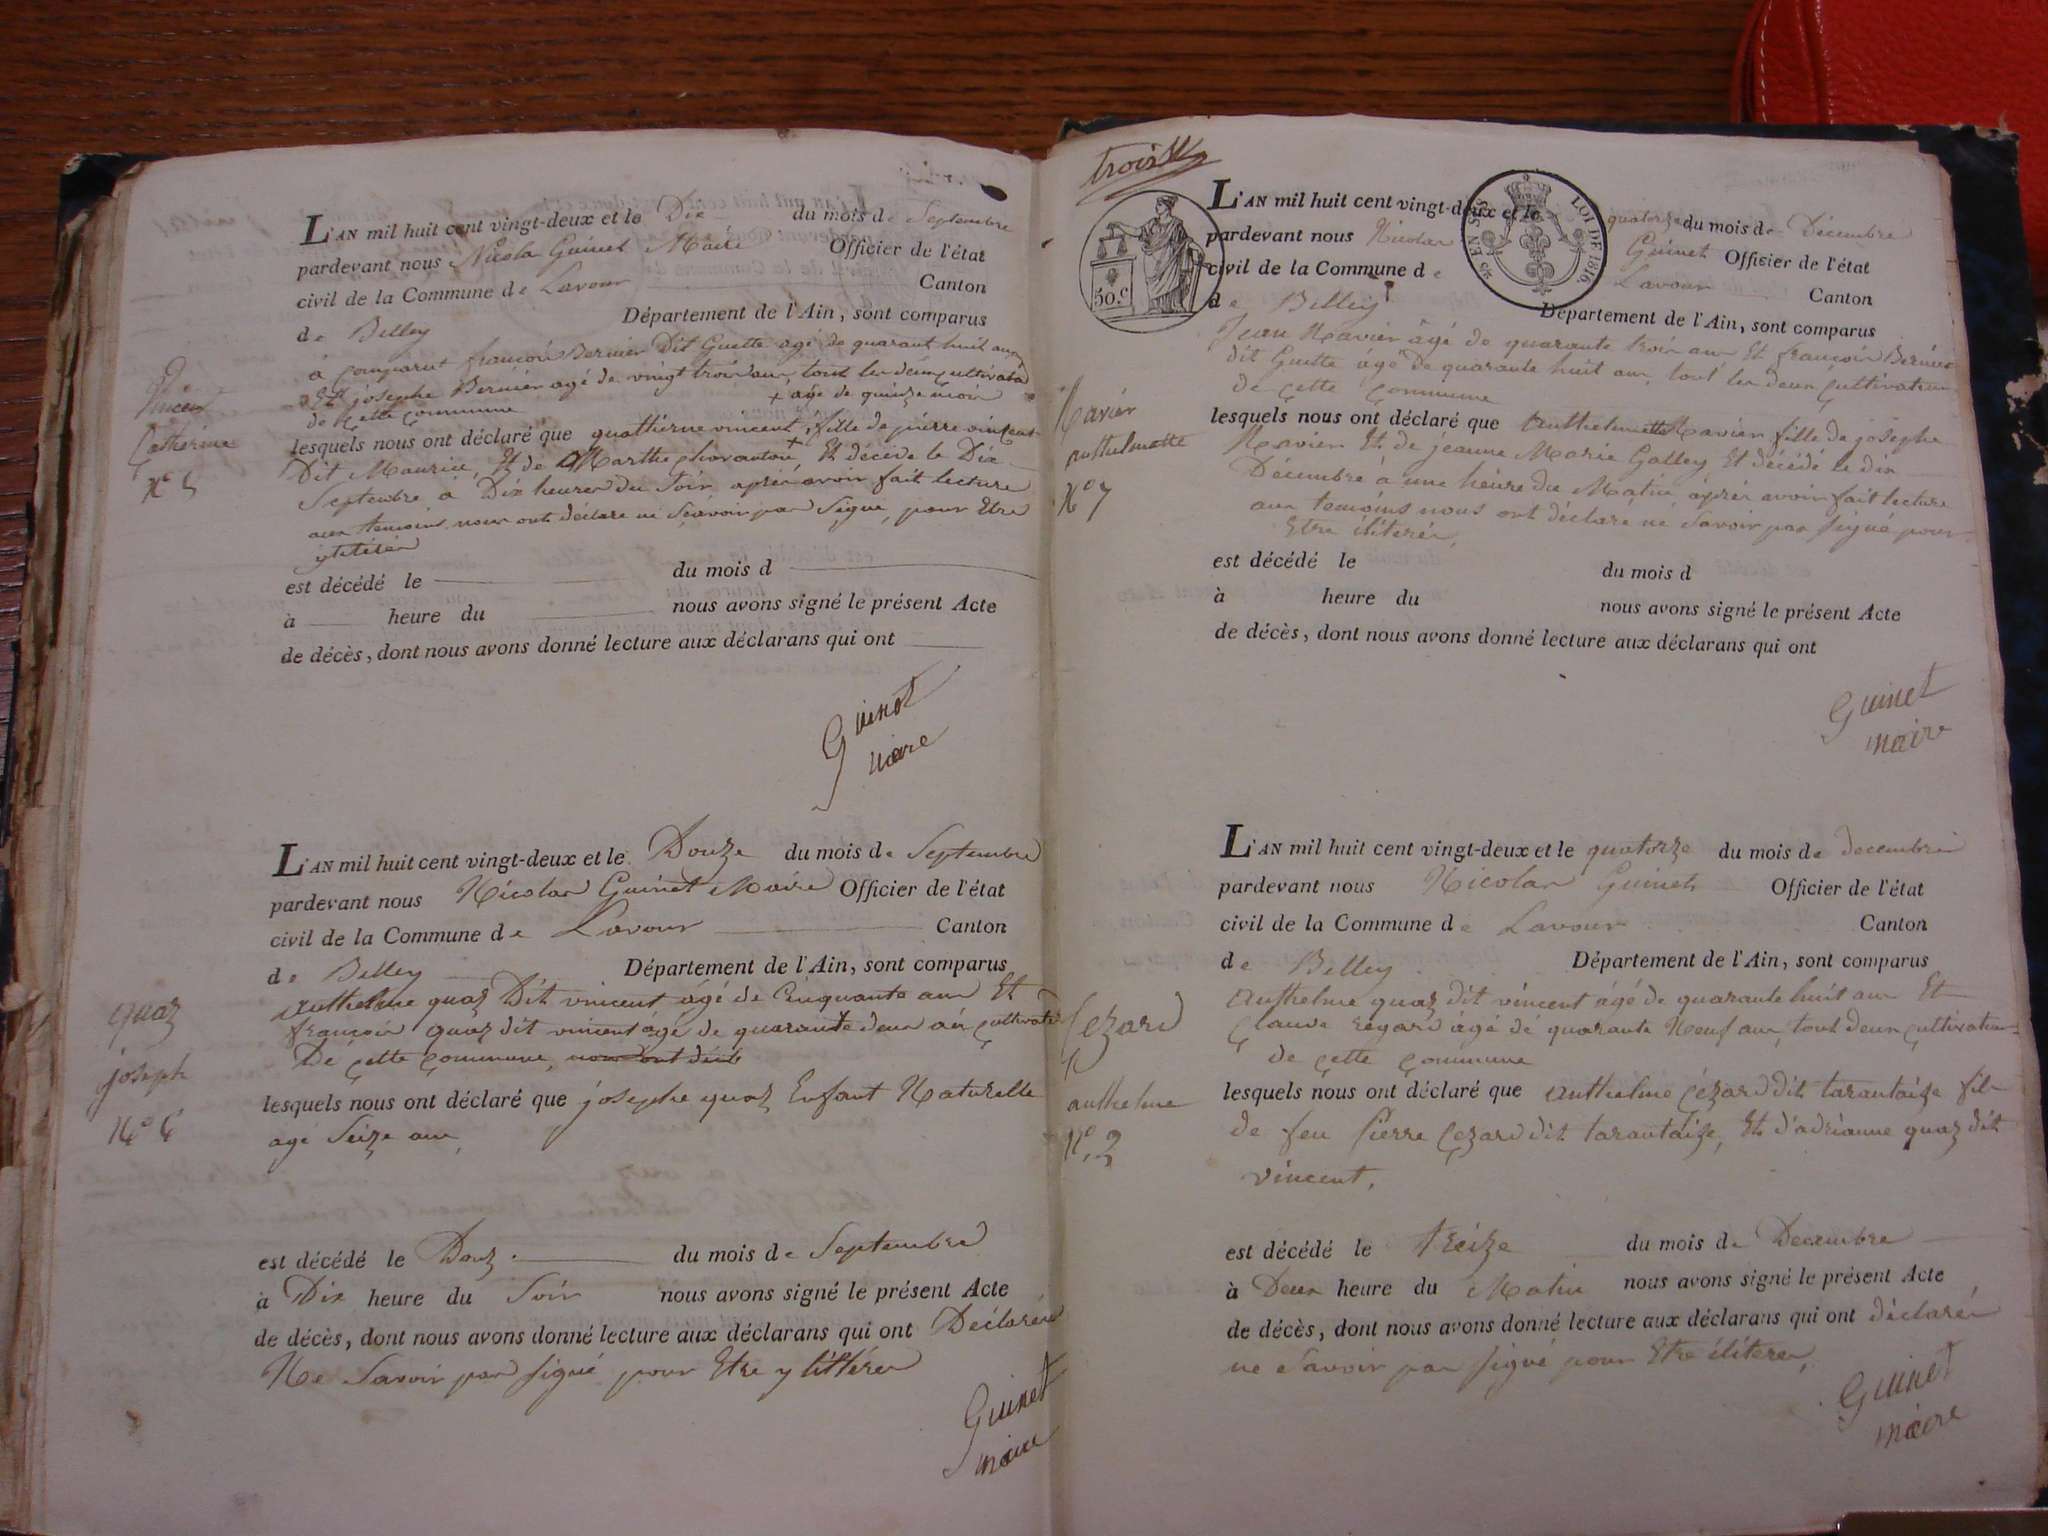 L'AN mil huit cent vingt-deux et le Dix du mois de Septembre
pardevant nous Nicola Guinet Maire Officier de l'état
civil de la Commune de Lavour Canton
de Belley Département de l'Ain, sont comparus
à comparut françois Bernier Dit Guette agé de quarant huit ans
Et josephe Bernier agé de vingt trois ans, tout les deux cultivateur
de cette commune + agée de quinze mois
Vincent
Catherine
N° 5
lesquels nous ont déclaré que quattierine vincent + fille de pierre vincent
Dit Maurice, Et de Marthe Et décède le Dix
Septembre à Dix heures du Soir après avoir fait lecture
aux temoins nous ont déclare ne Scavoir pas Signe, pour Etre
est décédé le du mois d
à heure du nous avons signé le présent Acte
de décès, dont nous avons donné lecture aux déclarans qui ont
Guinet
maire
L'AN mil huit cent vingt-deux et le Douze du mois de Septembre
pardevant nous Nicolas Guinet Maire Officier de l'état
civil de la Commune de Lavour Canton
de Belley Département de l'Ain, sont comparus
Anthelme quaz Dit vincent âgé de Cinquante ans Et
françois quaz dit vincent âgé de quarante deux ans cultivateur
De cette commune,
quaz
joseph
N° 6
lesquels nous ont déclaré que josephe quaz Enfant Naturelle
agé Seize ans,
est décédé le Douz du mois de Septembre
à Dix heure du Soir nous avons signé le présent Acte
de décès, dont nous avons donné lecture aux déclarans qui ont Déclarés
Ne Savoir pas signé pour Etre y littérer
Guinet
maire
troisie
50.C
25 EN SUS
LOI DE 1816.
L'AN mil huit cent vingt-deux et le quatorze du mois de Décembre
pardevant nous Nicolas Guinet Officier de l'état
civil de la Commune de Lavour Canton
de Belley Département de l'Ain, sont comparus
Jean Navier âgé de quarante trois ans Et françois Bernier
dit Guette âgé de quarante huit ans, tout les deux cultivateur
de cette commune
Navier
anthelmette
N° 7
lesquels nous ont déclaré que Anthelmette Navier fille de josephe
Navier Et de jeanne Marie Galley Et décédé le dix
Décembre à une heure du Matin après avoir fait lecture
aux temoins nous ont déclare né Savoir pas signé pour
Etre élitérér,
est décédé le du mois d
à heure du nous avons signé le présent Acte
de décès, dont nous avons donné lecture aux déclarans qui ont
Guinet
maire
L'AN mil huit cent vingt-deux et le quatorze du mois de decembre
pardevant nous Nicolas Guinet Officier de l'état
civil de la Commune de Lavour Canton
de Belley Département de l'Ain, sont comparus
Anthelme quaz dit vincent âgé de quarante huit ans Et
Claude régard âgé dé quarante Neuf ans, tout deux cultivateur
de cette commune
Cezard
anthelme
lesquels nous ont déclaré que Anthelme Cézard dit tarantaize fils
de feu Pierre Cezard dit tarantaize, Et d'adrianne quaz dit
vincent,
est décédé le treize du mois de Decembre
à Deux heure du Matin nous avons signé le présent Acte
de décès, dont nous avons donné lecture aux déclarans qui ont déclarér
ne Savoir pas signé pour Etre éliterer,
Guinet
maire